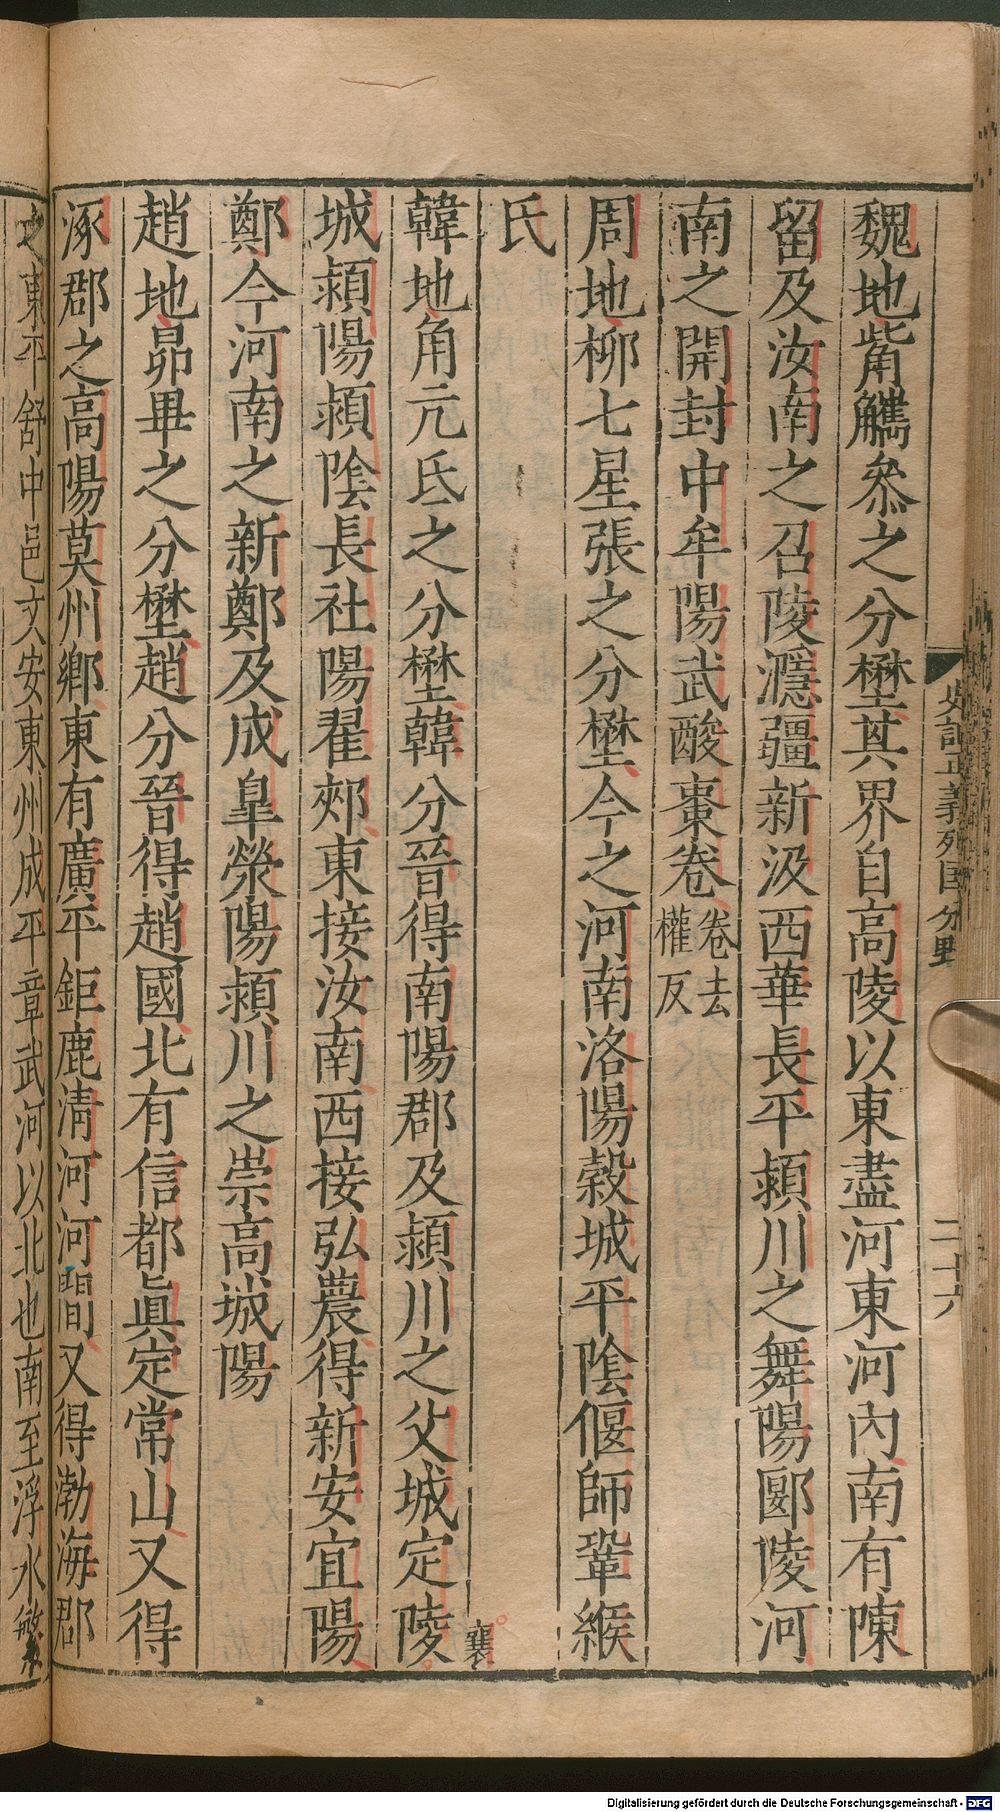 史記正義列国分野
二十六
魏地觜觿叅之分壄其界自高陵以東盡河東河內南有陳
留及汝南之召陵濦疆新汲西華長平潁川之舞陽郾陵河
南之開封中牟陽武酸棗卷
卷去
權反
周地柳七星張之分壄今之河南洛陽穀城平陰偃師鞏緱
氏
韓地角亢氐之分壄韓分晉得南陽郡及潁川之父城定陵
襄
城潁陽潁陰長社陽翟郟東接汝南西接弘農得新安宜陽
鄭今河南之新鄭及成皐滎陽潁川之崇高城陽
趙地昴畢之分壄趙分晉得趙國北有信都眞定常山又得
涿郡之高陽莫州鄉東有廣平鉅鹿清河河間又得渤海郡
之東平舒中邑文安東州成平章武河以北也南至浮水繁
Digitalisierung gefördert durch die Deutsche Forschungsgemeinschaft - DFG